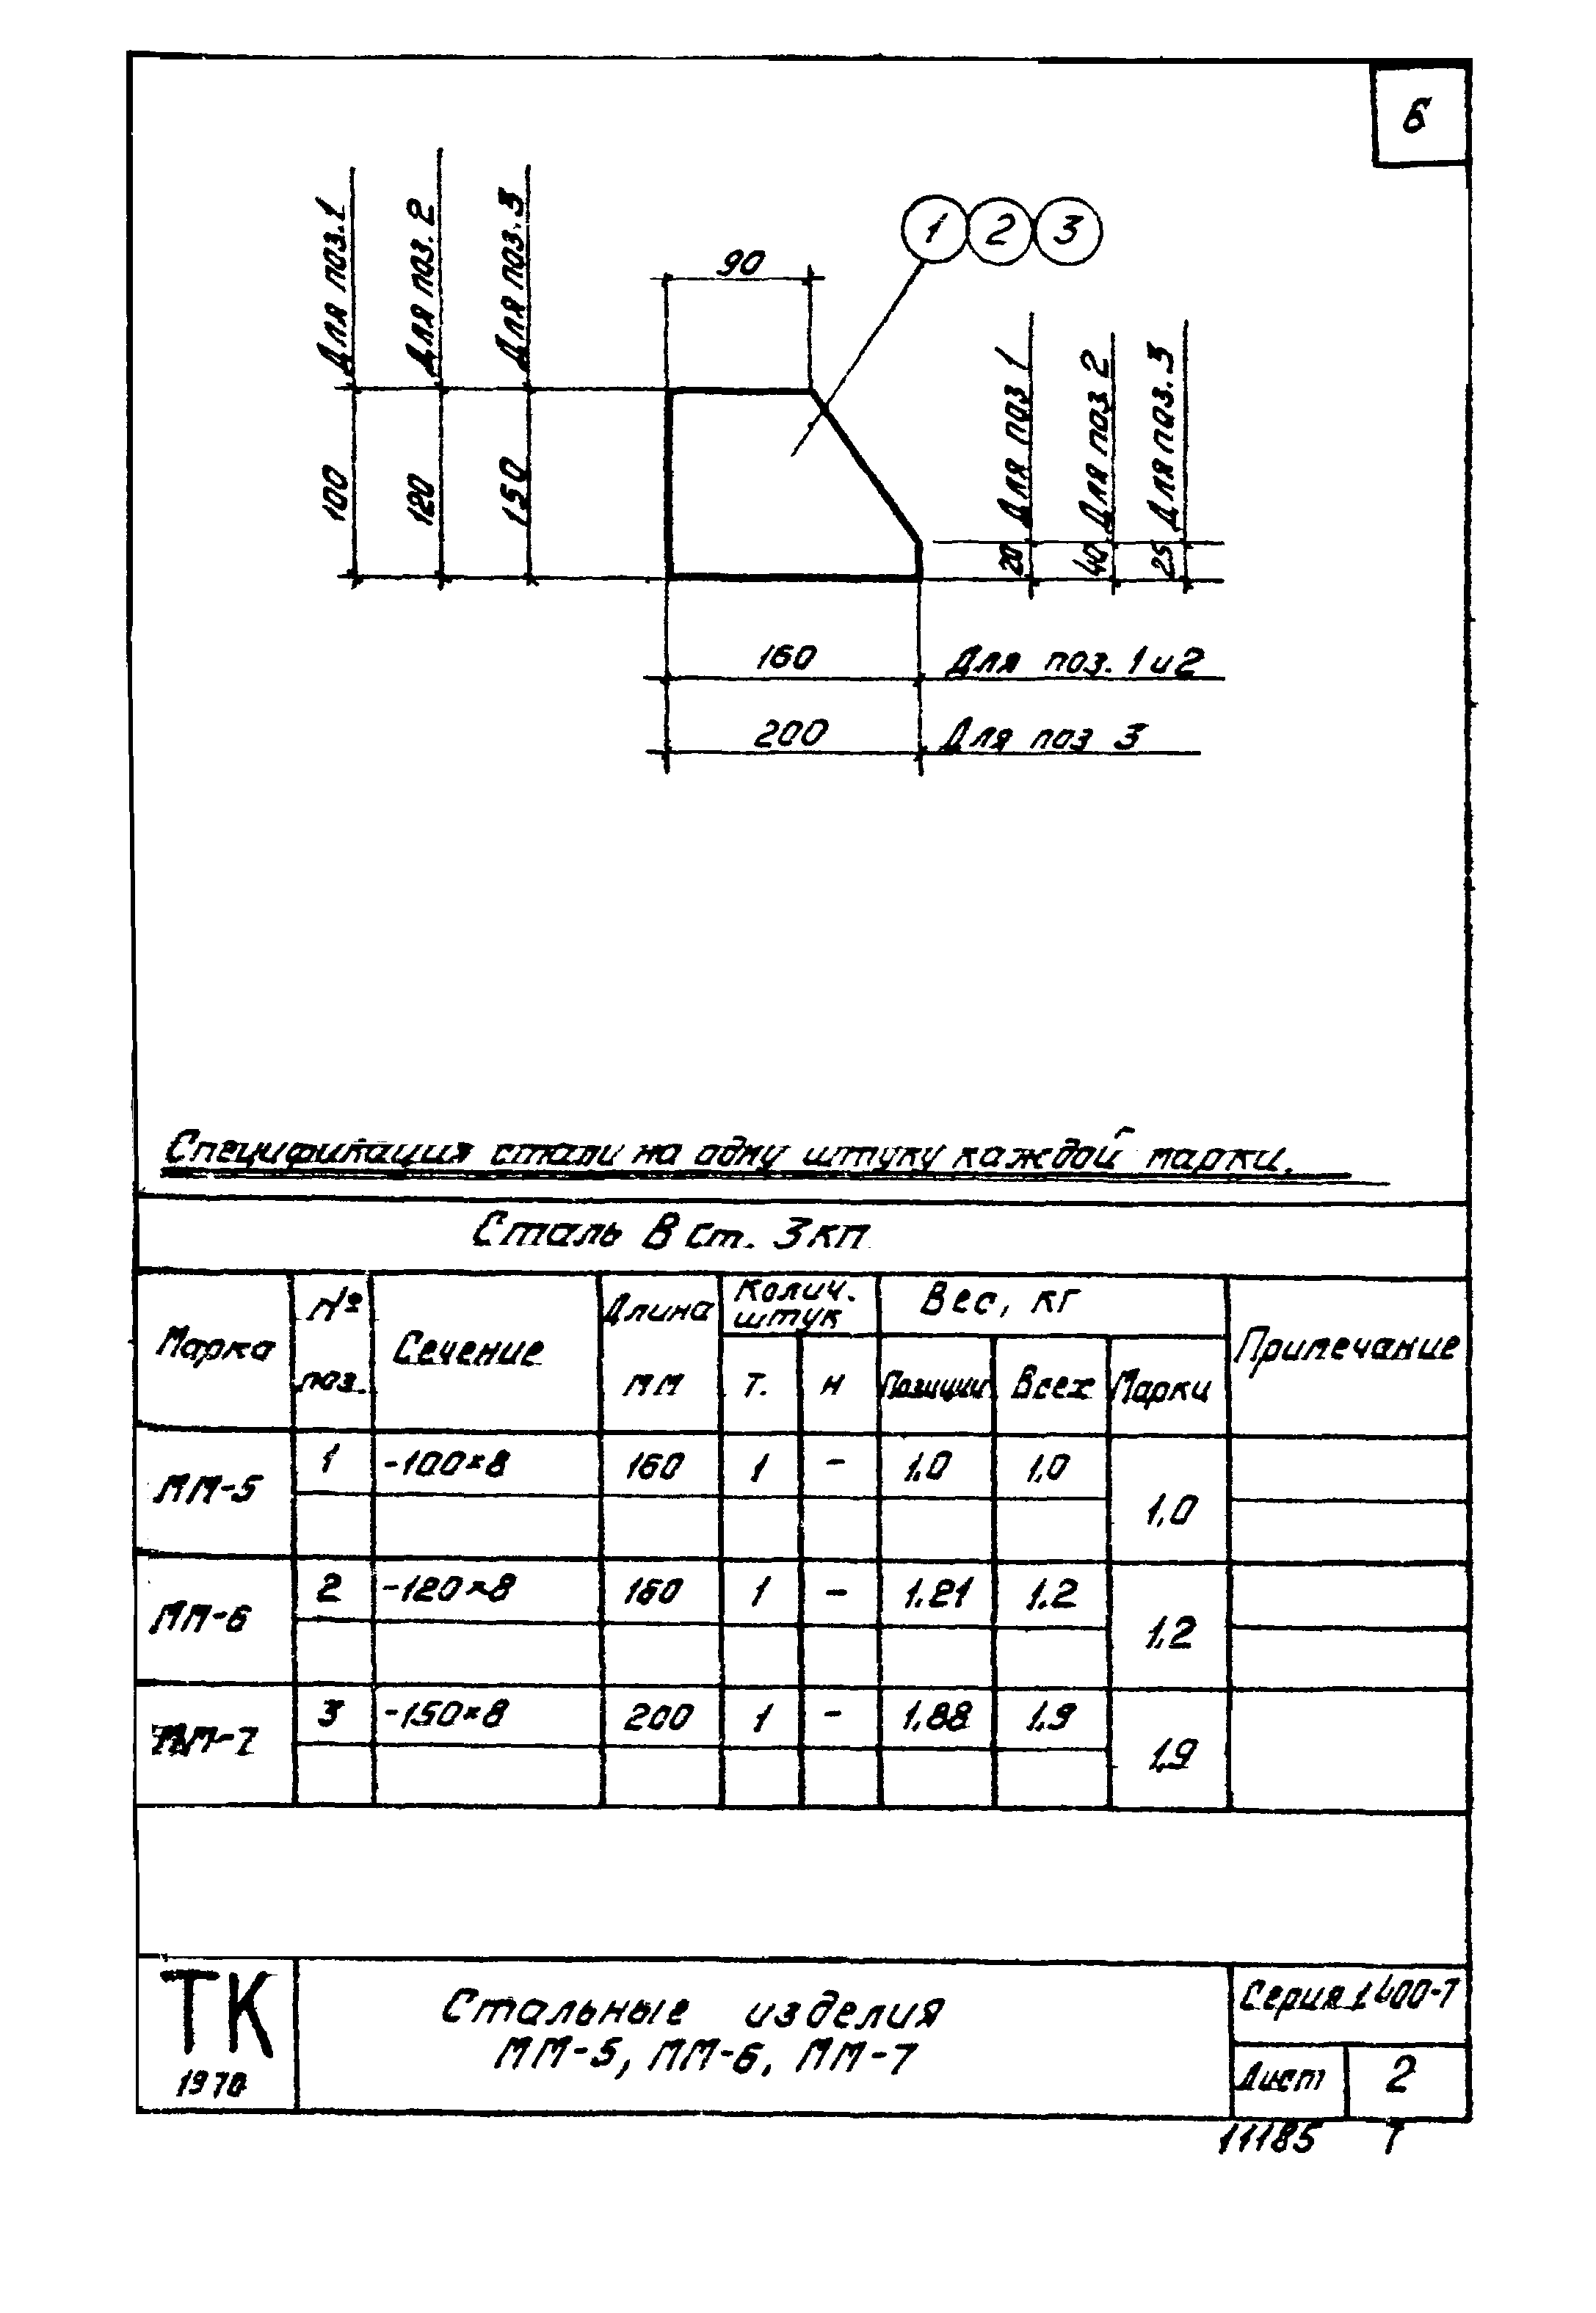 6
Для поз.1
Для поз. 2
Для поз. 3
90
1 2 3
100
120
150
Для поз 1
Для поз 2
Для поз. 3
20
40
25
160 Для поз. 1 и 2
200 Для поз 3
Спецификация стали на одну штуку каждой марки.
Сталь В ст. 3 кп
Марка № поз. Сечение Длина мм Колич. штук Вес, кг Примечание
т. н Позиции Всех Марки
ММ-5 1 -100×8 160 1 - 1,0 1,0 1,0
ММ-6 2 -120×8 160 1 - 1.21 1.2 1,2
ММ-7 3 -150×8 200 1 - 1,88 1,9 1,9
ТК
1970
Стальные изделия
ММ-5, ММ-6, ММ-7
Серия 1 400-7
Лист 2
11185 7